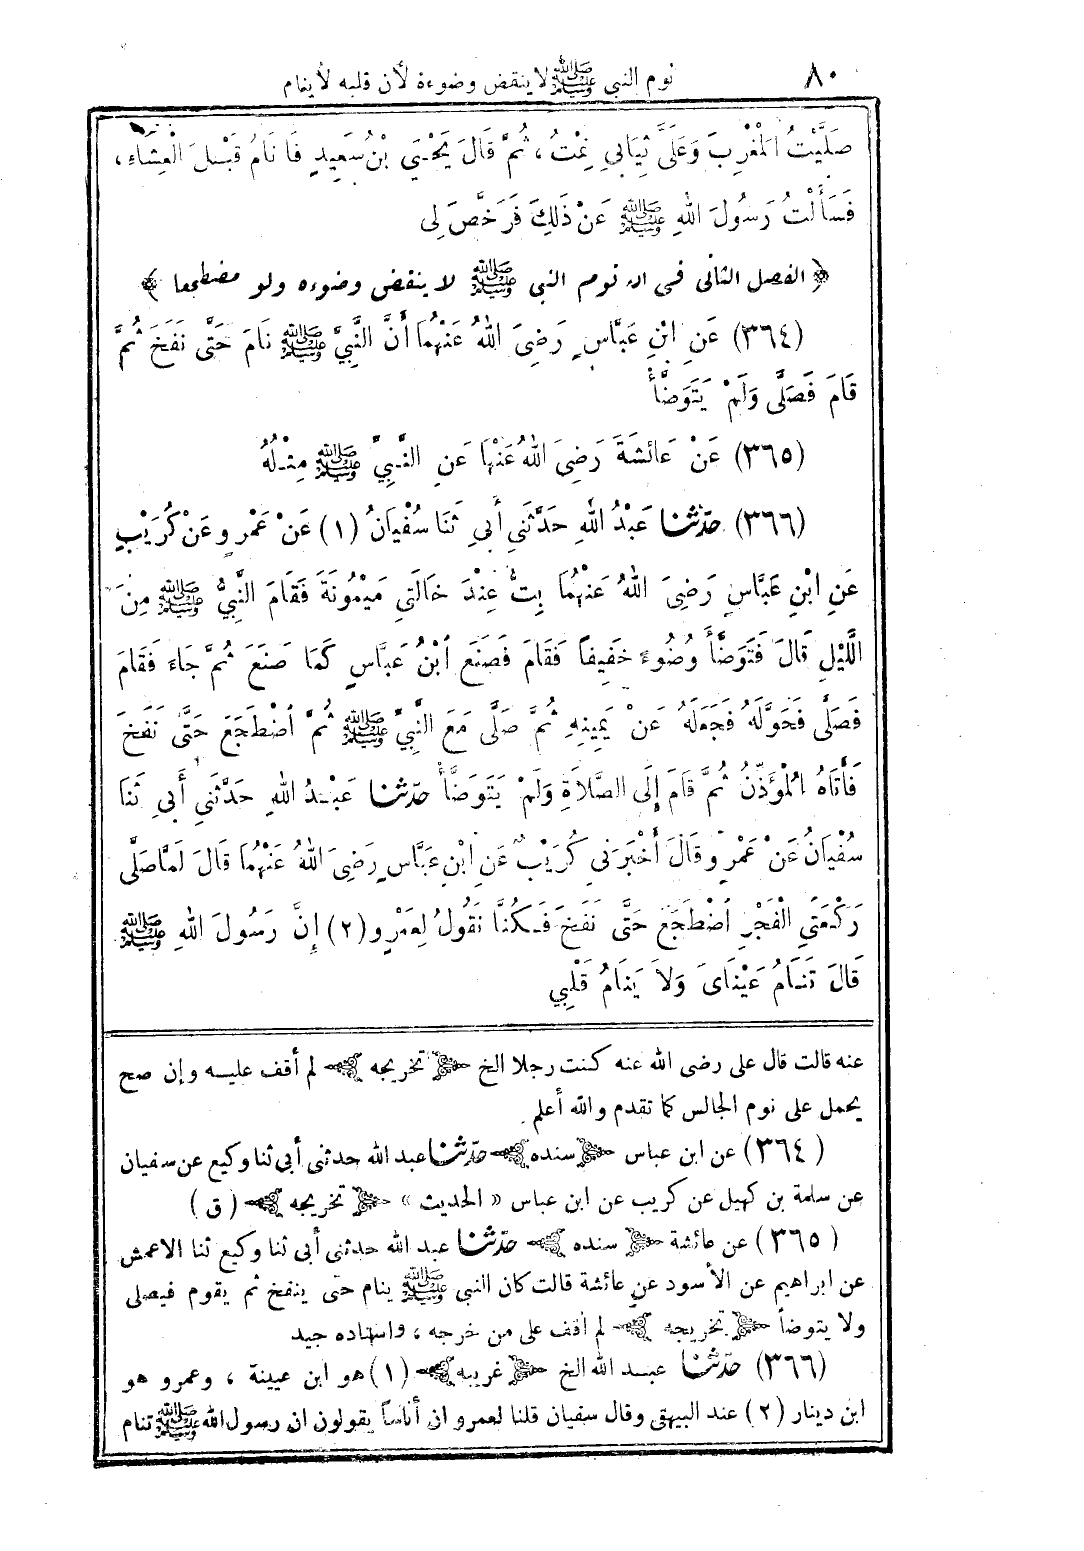 ٨٠ نوم النبي ﷺ لا ينقض وضوءة لأن قلبه لا ينام
صَلَّيْتُ الْمَغْرِبَ وَعَلَىَّ ثِيَابِي نِمْتُ ، ثُمَّ قَالَ يَحْيَي بْنُ سَعِيدٍ فَأَنَامُ قَبْلَ الْعِشَاءِ ،
فَسَأَلْتُ رَسُولَ اللهِ ﷺ عَنْ ذَلِكَ فَرَخَّصَ لِى
﴿ الفصل الثانى فى انه نوم النبى ﷺ لا ينقض وضوءه ولو مضطجعا ﴾
(٣٦٤) عَنِ ابْنِ عَبَّاسٍ رَضِىَ اللهُ عَنْهُمَا أَنَّ النَّبِيَّ ﷺ نَامَ حَتَّى نَفَخَ ثُمَّ
قَامَ فَصَلَّى وَلَمْ يَتَوَضَّأْ
(٣٦٥) عَنْ عَائِشَةَ رَضِىَ اللهُ عَنْهَا عَنِ النَّبِيِّ ﷺ مِثْلُهُ
(٣٦٦) حدّثنا عَبْدُ اللهِ حَدَّثَنِي أَبِي ثَنَا سُفْيَانُ (١) عَنْ عَمْرٍو عَنْ كُرَيْبٍ
عَنِ ابْنِ عَبَّاسٍ رَضِىَ اللهُ عَنْهُمَا بِتُّ عِنْدَ خَالَتِي مَيْمُونَةَ فَقَامَ النَّبِيُّ ﷺ مِنَ
اللَّيْلِ قَالَ فَتَوَضَّأَ وُضُوءً خَفِيفًا فَقَامَ فَصَنَعَ ابْنُ عَبَّاسٍ كَمَا صَنَعَ ثُمَّ جَاءَ فَقَامَ
فَصَلَّى فَحَوَّلَهُ فَجَعَلَهُ عَنْ يَمِينِهِ ثُمَّ صَلَّى مَعَ النَّبِيِّ ﷺ ثُمَّ اضْطَجَعَ حَتَّى نَفَخَ
فَأَتَاهُ الْمُؤَذِّنُ ثُمَّ قَامَ إِلَى الصَّلَاةِ وَلَمْ يَتَوَضَّأْ حدّثنا عَبْدُ اللهِ حَدَّثَنِي أَبِي ثَنَا
سُفْيَانُ عَنْ عَمْرٍو قَالَ أَخْبَرَنِي كُرَيْبٌ عَنِ ابْنِ عَبَّاسٍ رَضِىَ اللهُ عَنْهُمَا قَالَ لَمَّا صَلَّى
رَكْعَتَيِ الْفَجْرِ اضْطَجَعَ حَتَّى نَفَخَ فَكُنَّا نَقُولُ لِعَمْرٍو (٢) إِنَّ رَسُولَ اللهِ ﷺ
قَالَ تَنَامُ عَيْنَاىَ وَلاَ يَنَامُ قَلْبِي
عنه قالت قال على رضى الله عنه كنت رجلا الخ ﴿ تخريجه ﴾ لم أقف عليه وإن صح
يحمل على نوم الجالس كما تقدم والله أعلم
(٣٦٤) عن ابن عباس ﴿ سنده ﴾ حدّثنا عبد الله حدثنى أبى ثنا وكيع عن سفيان
عن سلمة بن كهيل عن كريب عن ابن عباس « الحديث » ﴿ تخريجه ﴾ (ق)
(٣٦٥) عن عائشة ﴿ سنده ﴾ حدّثنا عبد الله حدثنى أبى ثنا وكيع ثنا الاعمش
عن ابراهيم عن الأسود عن عائشة قالت كان النبى ﷺ ينام حتى ينفخ ثم يقوم فيصلى
ولا يتوضأ ﴿ تخريجه ﴾ لم اقف على من خرجه ، واسناده جيد
(٣٦٦) حدّثنا عبد الله الخ ﴿ غريبه ﴾ (١) هو ابن عيينة ، وعمرو هو
ابن دينار (٢) عند البيهقى وقال سفيان قلنا لعمرو ان أناساً يقولون ان رسول الله ﷺ تنام